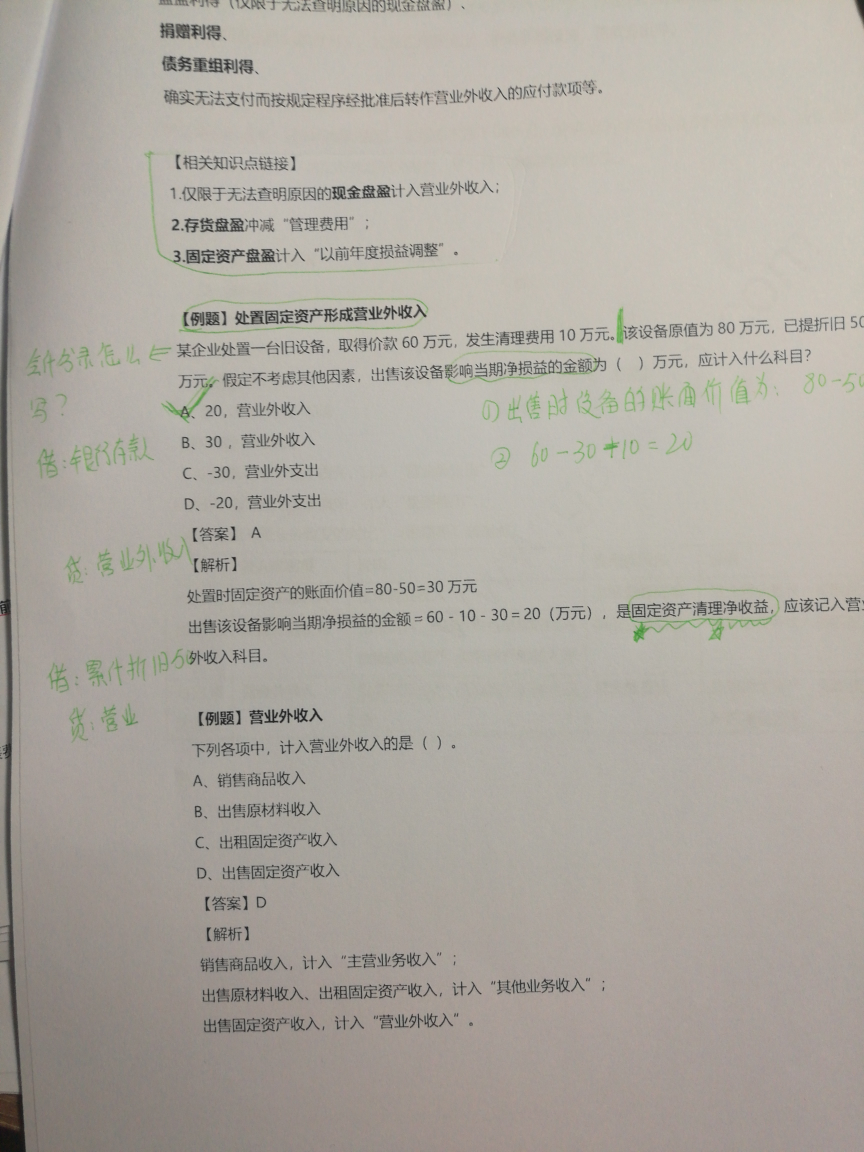 盘盈利得（仅限于无法查明原因的现金盘盈）、
捐赠利得、
债务重组利得、
确实无法支付而按规定程序经批准后转作营业外收入的应付款项等。
【相关知识点链接】
1.仅限于无法查明原因的现金盘盈计入营业外收入；
2.存货盘盈冲减“管理费用”；
3.固定资产盘盈计入“以前年度损益调整”。
【例题】处置固定资产形成营业外收入
某企业处置一台旧设备，取得价款 60 万元，发生清理费用 10 万元。该设备原值为 80 万元，已提折旧 50
万元。假定不考虑其他因素，出售该设备影响当期净损益的金额为（ ）万元，应计入什么科目？
会计分录怎么
写？
A、20，营业外收入
①出售时设备的账面价值为：80-50
B、30 ，营业外收入
② 60-30-10=20
借：银行存款
C、-30，营业外支出
D、-20，营业外支出
【答案】 A
贷：营业外收入
【解析】
处置时固定资产的账面价值=80-50=30 万元
出售该设备影响当期净损益的金额＝60－10－30＝20（万元），是固定资产清理净收益，应该记入营业
外收入科目。
借：累计折旧50
贷：营业
【例题】营业外收入
下列各项中，计入营业外收入的是（ ）。
A、销售商品收入
B、出售原材料收入
C、出租固定资产收入
D、出售固定资产收入
【答案】D
【解析】
销售商品收入，计入“主营业务收入”；
出售原材料收入、出租固定资产收入，计入“其他业务收入”；
出售固定资产收入，计入“营业外收入”。